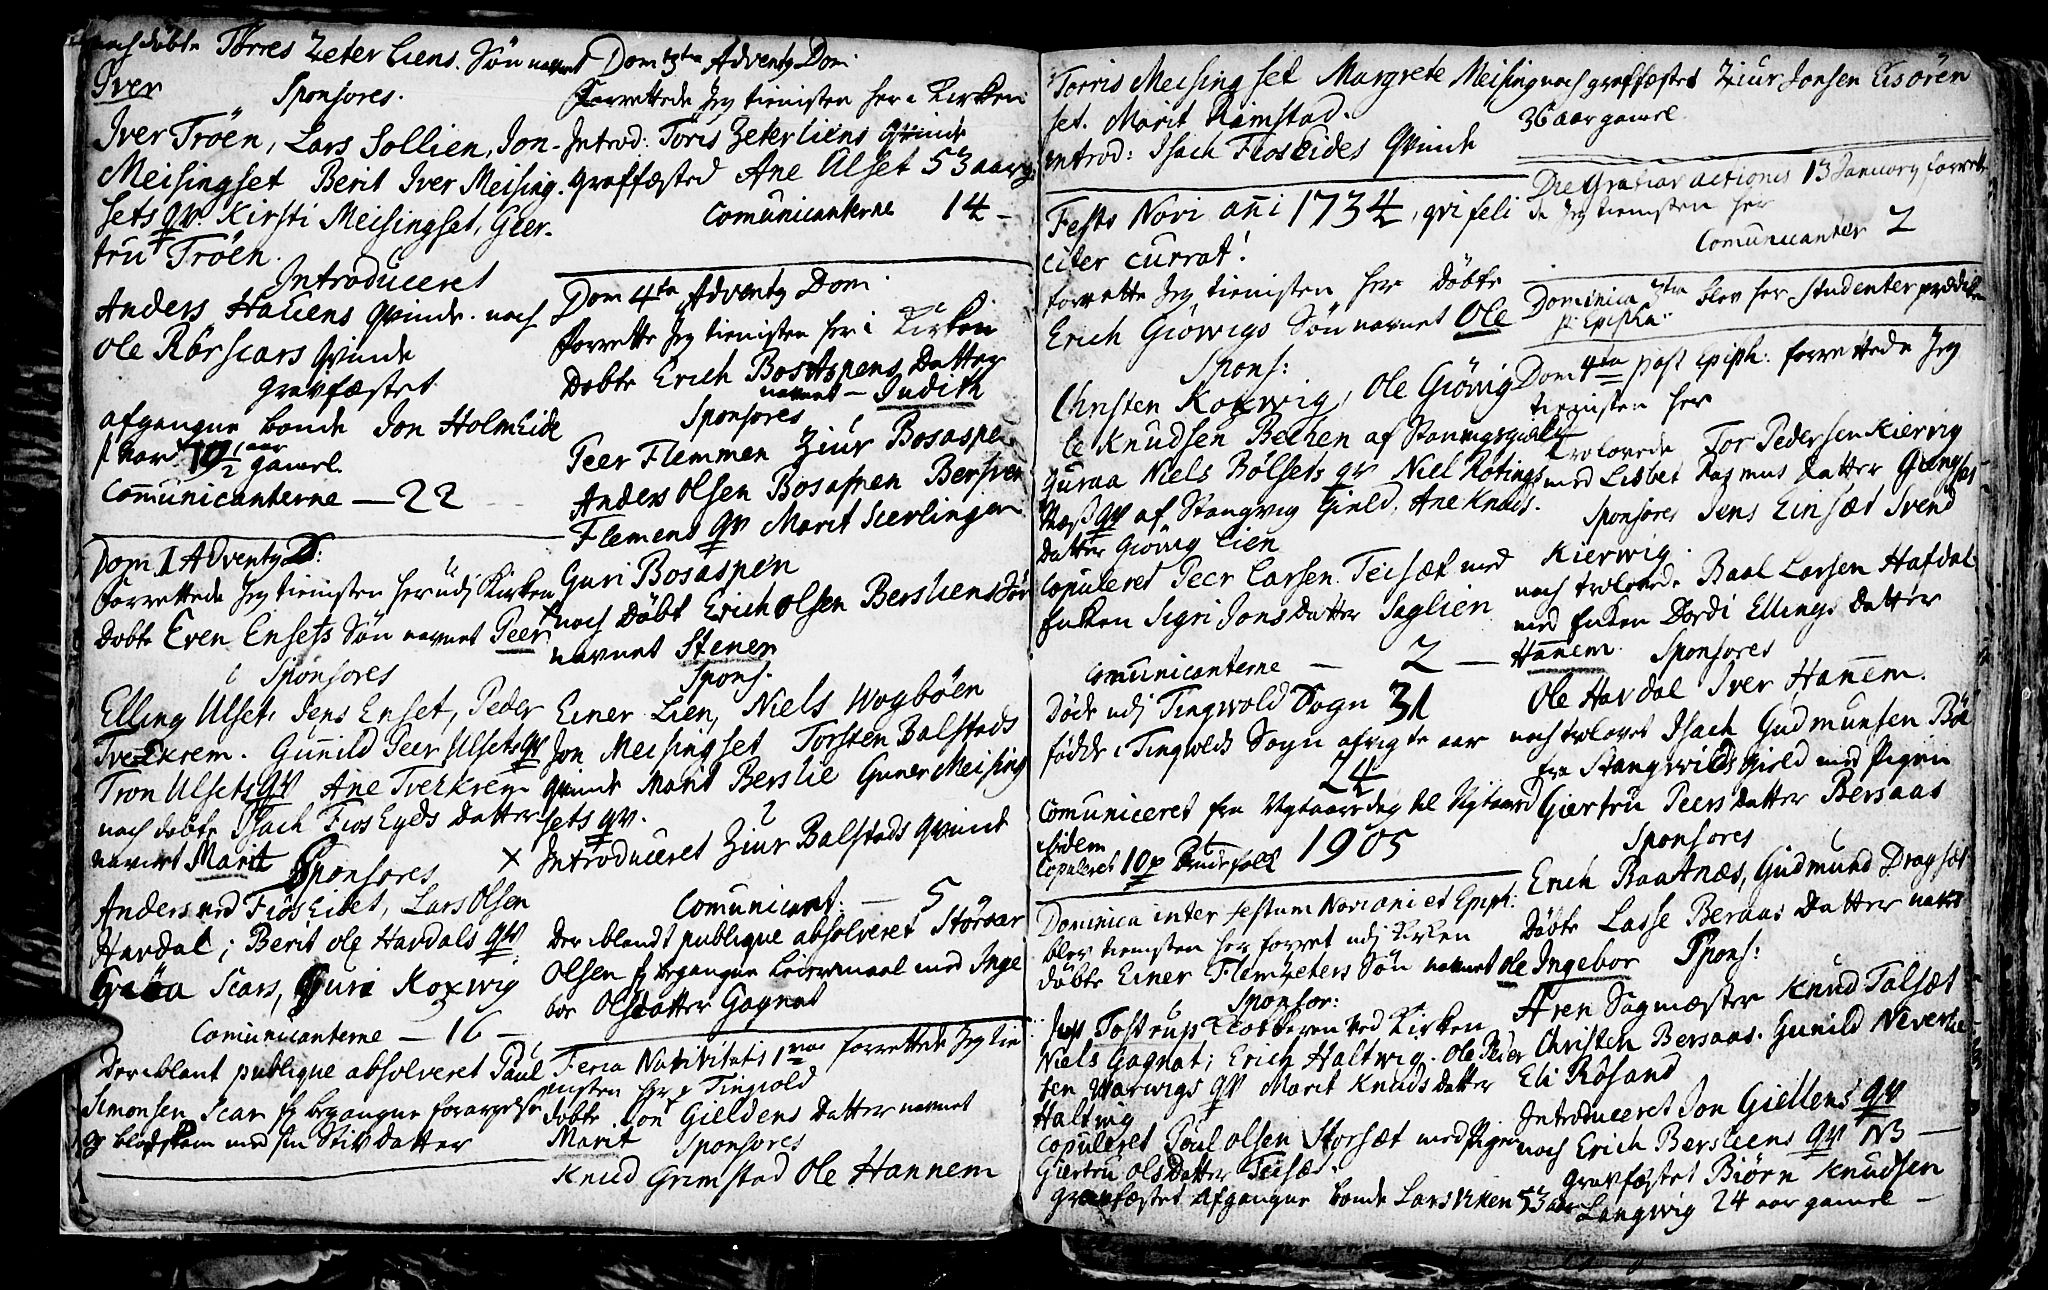 noch döbte Törres Zeterliens Søn navnet
Iver
Sponsores.
Iver Tröen, Lars Sollien, Jon
Meisingset Berit Iver Meising
sets qv. Kirsti Meisingset, Gier-
tru Tröen.
Introduceret
Anders Haliens Qvinde. noch
Ole Rörscars Qvinde
gravfæstet
afgangne bonde Jon Holmeide
10 1/2 aar gamel
Comunicanterne — 22
Dom 1 Adventg D:
Forrettede Jeg tienisten her udj Kirken
Döbte Even Ensets Søn navnet Peer
Sponsores
Elling Ulset, Jens Enset, Peder
Tvedkrem. Gunild Peer Ulsets qv
Tron Ulsets qv Ane Tvekrem
noch döbte Isach FiosEyds Datter
navnet Marit Sponsores
Anders ved FiösEidet, Lars Olsen
Hardal; Berit Ole Hardals qv.
Scars, Guri Koxwig
Comunicanterne — 16 —
Der iblant publique absolveret Paul
Simonsen Scar begangne forargelse
og blodskam med sin Stivdatter
Dom 3tia Adventg Dom.
Forrettede Jeg tienisten her i Kirken
Introd: Toris Zeterliens Qvinde
graffæsted Ane Ulset 53 aar g:
Comunicanterne 14 —
Dom 4ta Adventg Dom.
Forrette Jeg tienisten her i Kirken
Döbte Erich Bosaspens Datter
navnet — Judith
Sponsores
Peer Flemmen Ziur Bosaspen
Anders Olsen Bosaspen Bersven
Flemens qv Marit Scerlingen
Guri Bosaspen
noch Döbt Erich Olsen Bersliens Sön
navnet Stener
Spons.
Einer Lien, Niels Wogböen
Jon Meisingset Torsten Balstads
Qvinde Marit Berslie Guner Meising
sets qv.
Introduceret Ziur Balstads Qvinde
Comunicant: — 5
Der iblandt publique absolveret Störcar
Olsen begangne Leiermaal med Inge
bor Olsdatter Gagnat
Feria Nativitatis 1ma forrettede Jeg tie
nisten her p Tingvold
döbte Jon Gieldens Datter navnet
Marit Sponsores
Knud Grimstad Ole Hannem
Torris Meisingset Margrete Meising
set. Marit Rimstad.
introd: Isach FiosEides Qvinde
Festo Novi anni 1734, qvi feli
citer currat!
forrette Jeg tienisten her Döbte
Erich Giöwigs Søn navnet Ole
Spons:
Christen Koxwig, Ole Giövig
Ole Knudsen Bechen af Stanvigsgield
Guraa Niels Bölsets qv Niel Rötings
næss qv af Stangvig Gield. Ane Knuds.
datter Giövig Lien
Copuleret Peer Larsen Teisæt med
Enken Sigri Jonsdatter Saglien
Comunicanterne — 2 —
Döde udj Tingwold Sogn 31
födde i Tingvolds Sogn afvigte aar
24
Comuniceret fra Nytaarsdag til Nytaarsd
ibidem 1905
Copuleret 10 p Brudefolk
Dominica inter festum Novi ani et Epiph:
blev tienisten her forret udj Kirken
döbte Einer Flemzeters Søn navnet Ole
Sponsor:
Tostrup Klokkeren ved Kirken
Niels Gagnat; Erich Haltwig. Ole Peder
sen Warwigs qv Marit Knudsdatter
Haltwig
copuleret Poul Olsen Storsæt med Pigen
Giertru Olsdatter Teisæt
gravfæstet afgangne bonde Lars Viken 53 aar
noch graffæstet Ziur Jonsen Eisören
36 aar gamel.
Die Gratiar actionis 13 January forrett
de Jeg tienisten her
Comunicanter 2
Dominica 3tia blev her Studenter prædiken
p: Epipha:
Dom 4ta post Epiph: forrettede Jeg
tienisten her
trolovede Tor Pedersen Kiervig
med Lisbet Rasmusdatter
Sponsores Jens Einsæt Svend
Kierwig.
noch trolovede Baal Larsen Hafdal
med Enken Dordi Ellings Datter
Hanem. Sponsores
Ole Hardal Iver Hanem.
noch trolovet Isach Gudmunsen Böe
fra Stangwigs gield med Pigen
Giertru Peersdatter Bersaas
Sponsores
Erich Baatnæs, Gudmund Dragsæt
Döbte Lasse Beraas Datter navnet
Ingebor Spons:
Aren Sagmæster Knud Talsæt
Christen Bersaas. Gunild Neverlie
Eli Rösand
Introduceret Jon Giellens qv
noch Erich Bersliens qv NB —
gravfæstet Biörn Knudsen
Langwig 24 aar gamel —